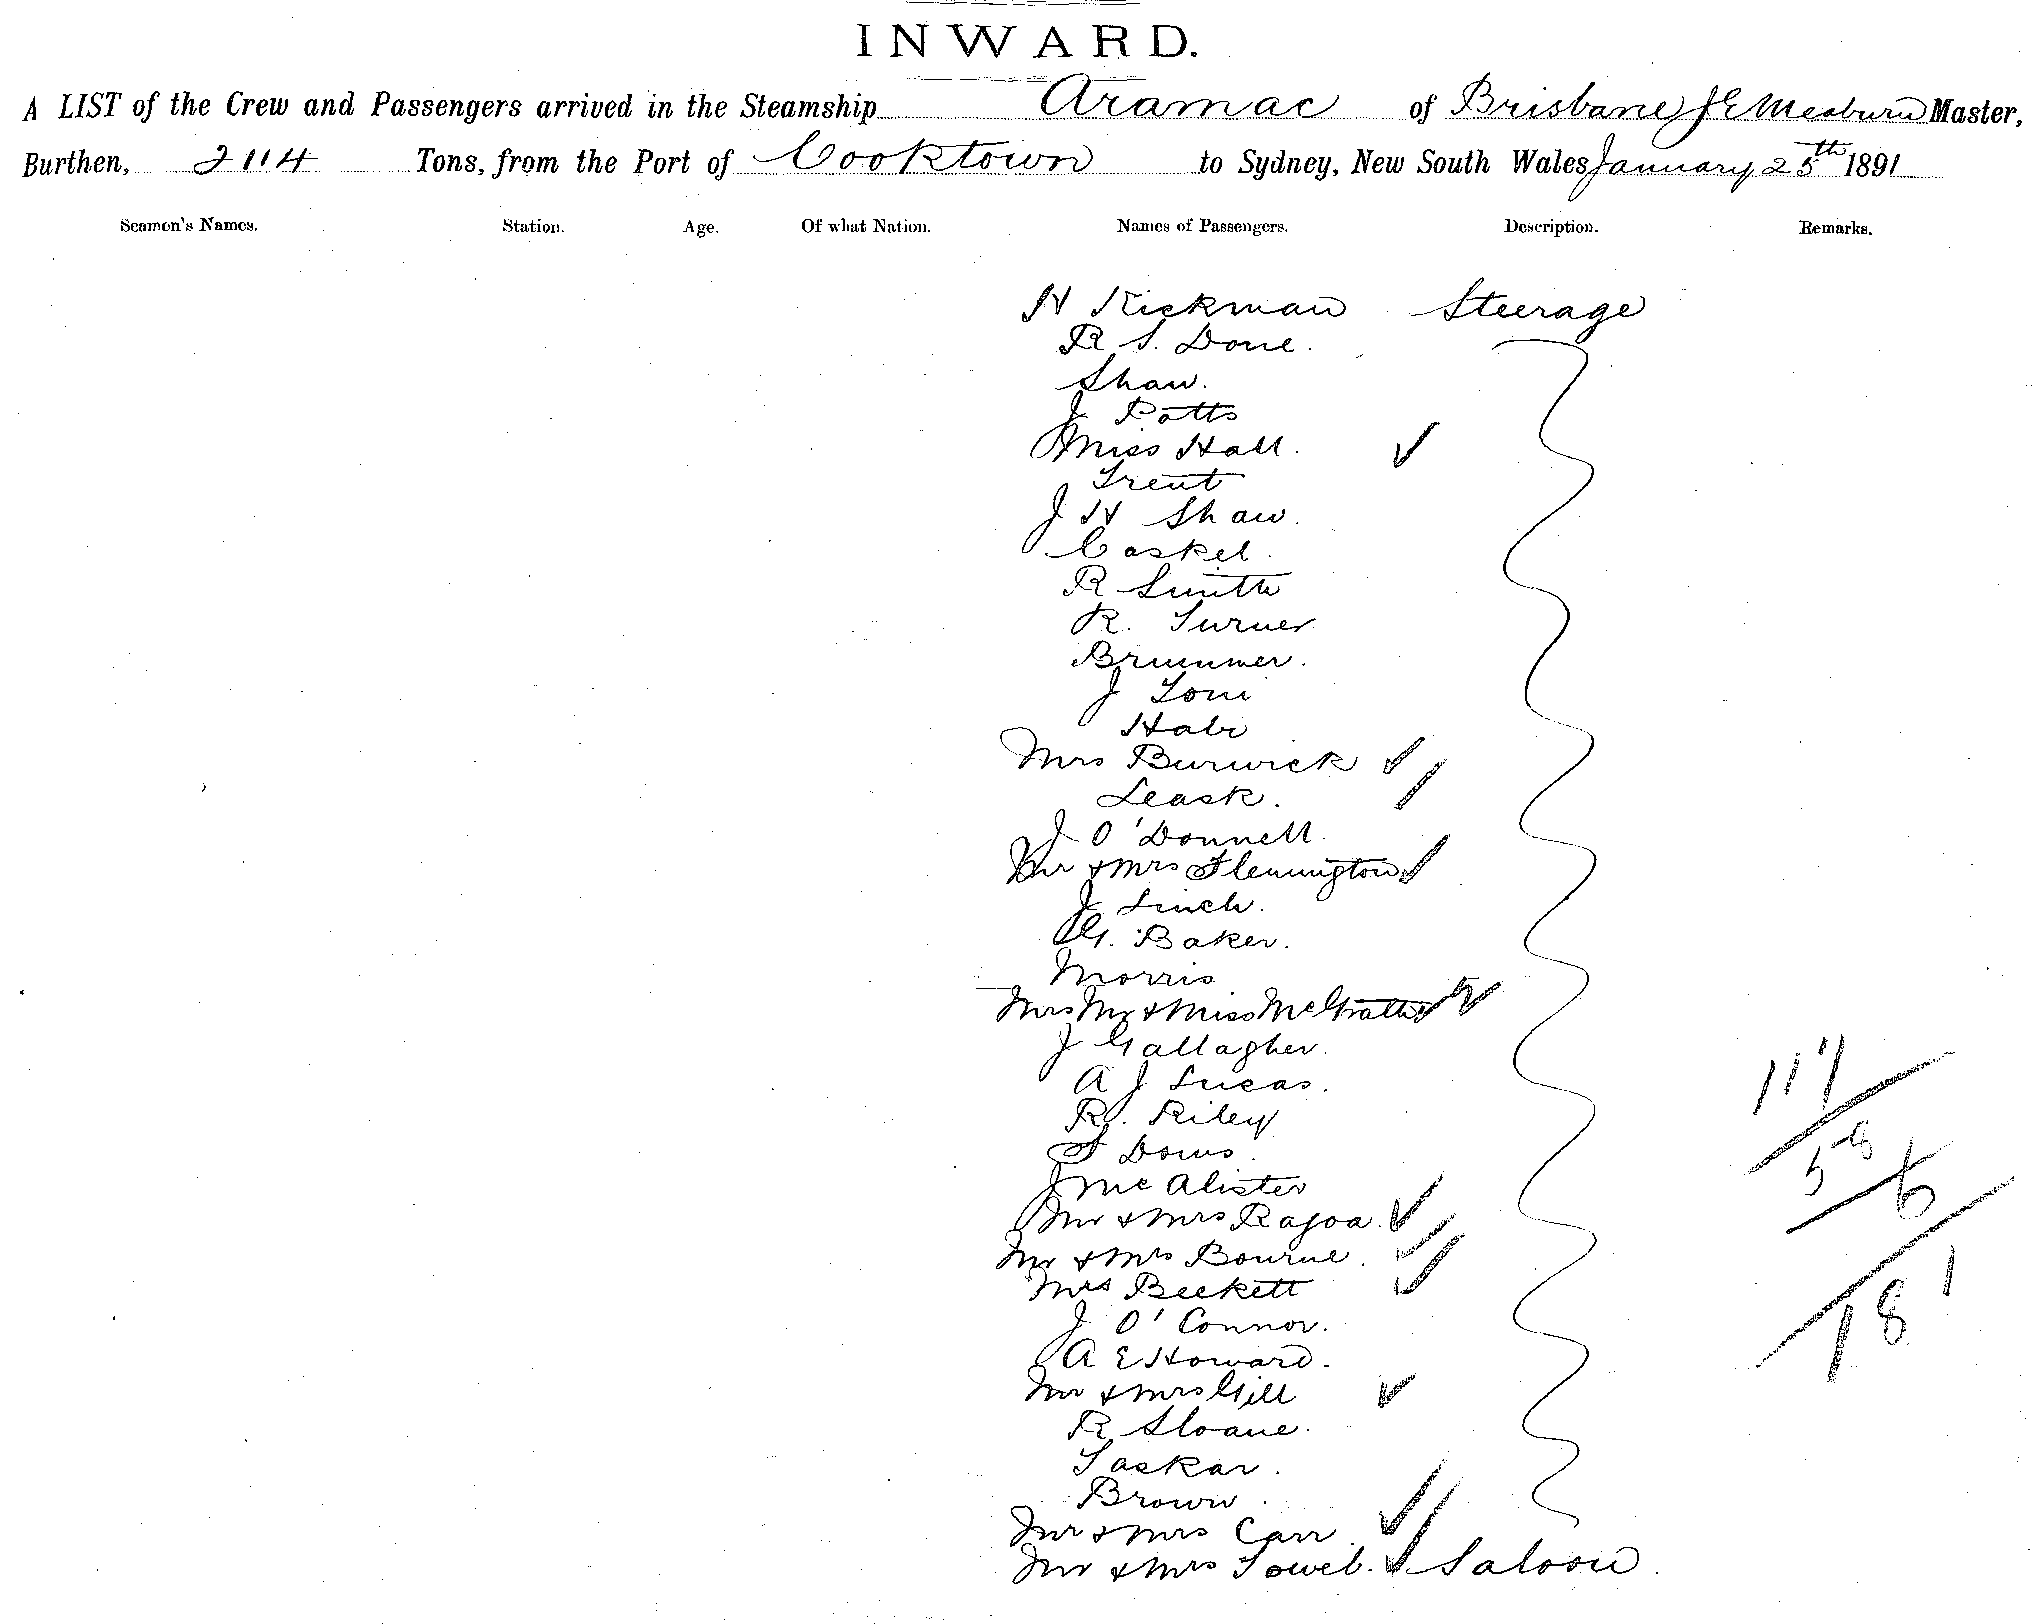 INWARD.
A LIST of the Crew and Passengers arrived in the Steamship Aramac of Brisbane J E Meaburn Master,
Burthen, 2114 Tons, from the Port of Cooktown to Sydney, New South Wales January 25th 1891
Seamen's Names. Station. Age. Of what Nation. Names of Passengers. Description. Remarks.
H Kickman Steerage
R S. Done.
Shaw.
J Potts
Miss Hall.
Trent
J H Shaw.
Caskel.
R Smith
R. Turner
Brummer.
J Toni
Hale
Mrs Burwick
Leask.
J O'Donnell.
Mr & Mrs Flemmington
J Linch.
G. Baker.
Morris
Mrs Mr & Miss McGrath
J Gallagher.
A J Lucas.
R. Riley
F Downs.
J McAlister
Mr & Mrs Rajoa.
Mr & Mrs Bourne.
Mrs Beckett
J O'Connor.
A E Howard.
Mr & Mrs Gill
R Sloane.
Taskar.
Brown.
Mr & Mrs Carr
Mr & Mrs Towel. Saloon.
117
58
6
181